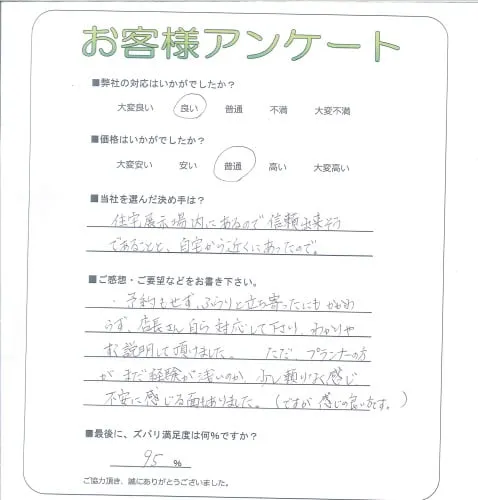 お客様アンケート
■弊社の対応はいかがでしたか？
大変良い 良い 普通 不満 大変不満
■価格はいかがでしたか？
大変安い 安い 普通 高い 大変高い
■当社を選んだ決め手は？
住宅展示場内にあるので信頼出来そう
であることと、自宅から近くにあったので。
■ご感想・ご要望などをお書き下さい。
・予約もせず、ぶらりと立ち寄ったにもかかわ
らず、店長さん自ら対応して下さり、わかりや
すく説明して頂けました。 ただ、プランナーの方
がまだ経験が浅いのか、少し頼りなく感じ
不安に感じる面もありました。（ですが 感じの良い方です。）
■最後に、ズバリ満足度は何%ですか？
95 %
ご協力頂き、誠にありがとうございました。